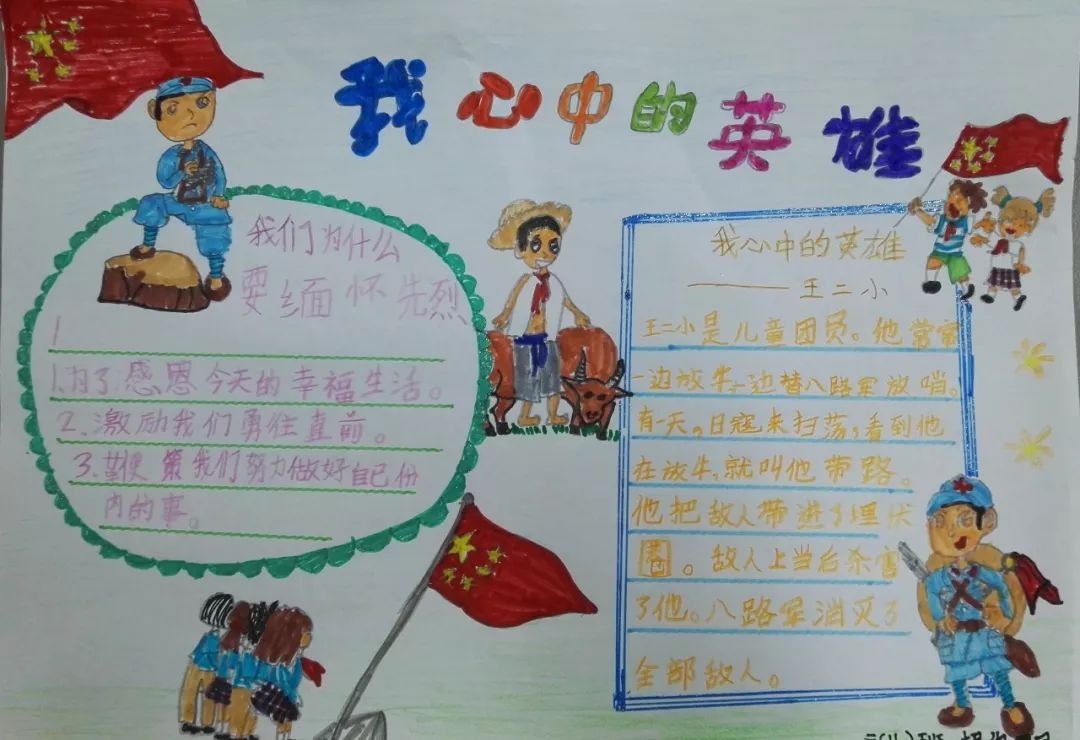 我心中的英雄
我们为什么
要缅怀先烈
1
1.为了感恩今天的幸福生活。
2、激励我们勇往直前。
3.鞭策我们努力做好自己份
内的事。
我心中的英雄
——王二小
王二小是儿童团员。他常常
一边放牛,一边替八路军放哨。
有一天,日寇来扫荡,看到他
在放牛,就叫他带路。
他把敌人带进了埋伏
。敌人上当后杀害
了他。八路军消灭了
全部敌人。